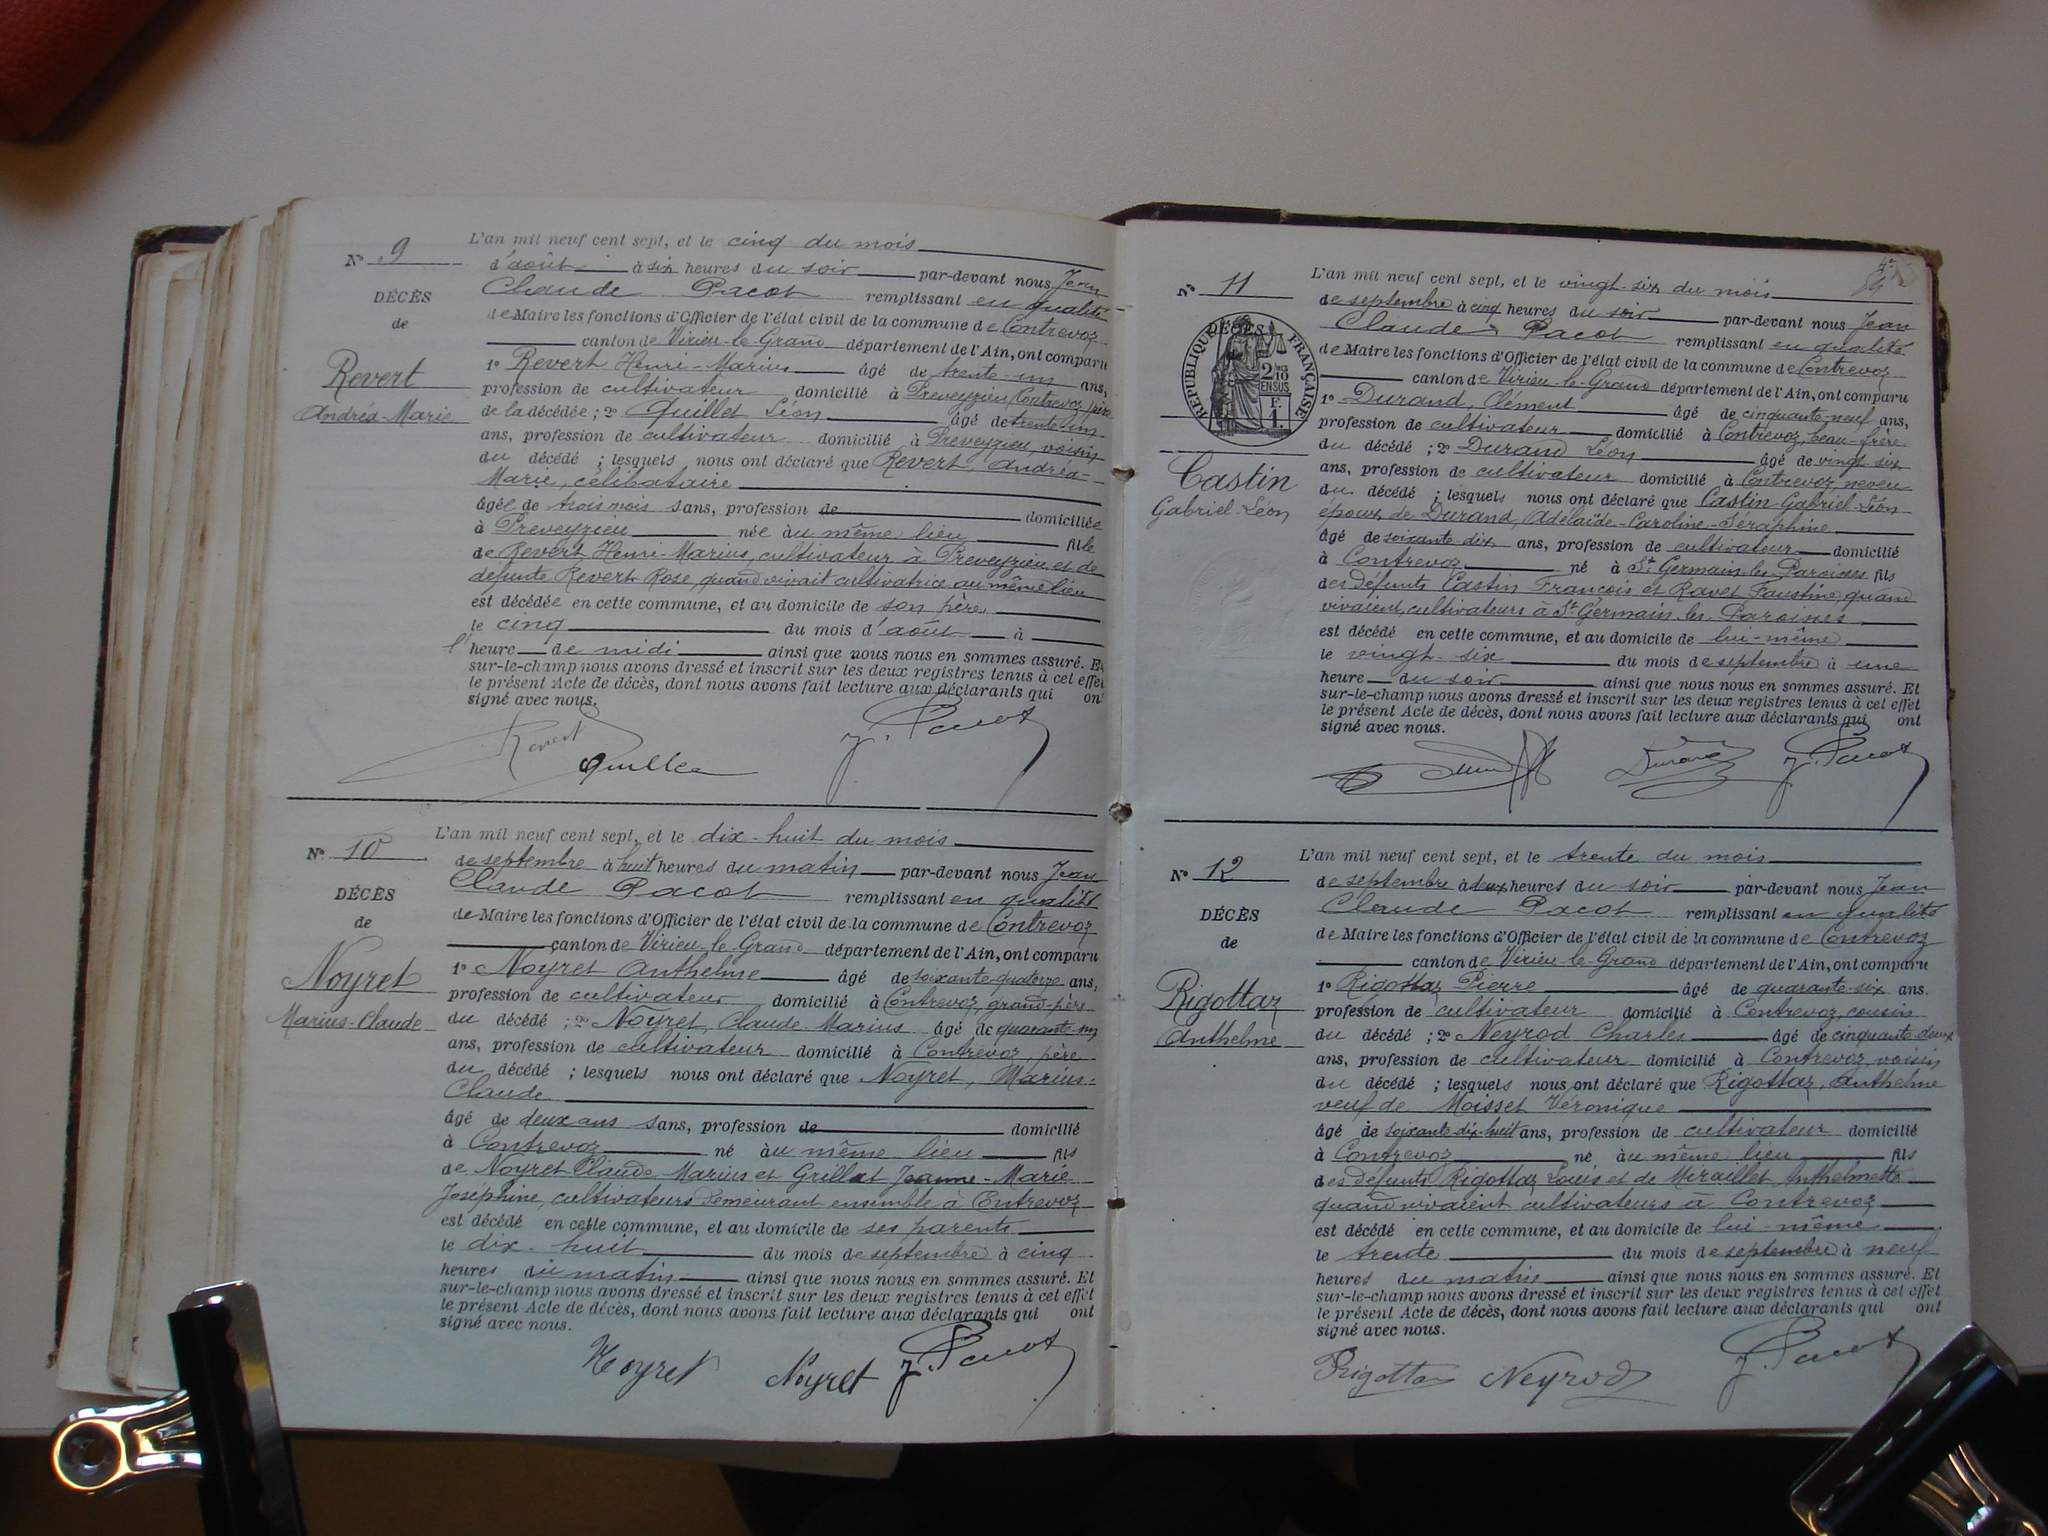 L'an mil neuf cent sept, et le cinq du mois
N° 9
d'août à six heures du soir par-devant nous Jean
DÉCÈS
Claude Pacot remplissant en qualité
de
de Maire les fonctions d'Officier de l'état civil de la commune de Contrevoz
canton de Virieu-le-Grand département de l'Ain, ont comparu
Revert
1° Revert Henri-Marius âgé de trente-un ans,
Andréa-Marie
profession de cultivateur domicilié à Preveyzieu, Contrevoz, père
de la décédée ; 2° Quillet Léon âgé de trente-un
ans, profession de cultivateur domicilié à Preveyzieu, voisin
du décédé ; lesquels nous ont déclaré que Revert, Andréa-
Marie, célibataire
âgée de trois mois sans, profession de domiciliée
à Preveyzieu née au même lieu fille
de Revert Henri-Marius, cultivateur à Preveyzieu et de
défunte Revert Rose, quand vivait cultivatrice au même lieu
est décédée en cette commune, et au domicile de son père
le cinq du mois d'août à
l'heure de midi ainsi que nous nous en sommes assuré. Et
sur-le-champ nous avons dressé et inscrit sur les deux registres tenus à cet effet
le présent Acte de décès, dont nous avons fait lecture aux déclarants qui ont
signé avec nous.
Revert Quillet J. Pacot
L'an mil neuf cent sept, et le dix-huit du mois
N° 10
de septembre à huit heures du matin par-devant nous Jean
DÉCÈS
Claude Pacot remplissant en qualité
de
de Maire les fonctions d'Officier de l'état civil de la commune de Contrevoz
canton de Virieu-le-Grand département de l'Ain, ont comparu
Noyret
1° Noyret Anthelme âgé de soixante-quatorze ans,
Marius-Claude
profession de cultivateur domicilié à Contrevoz, grand-père
du décédé ; 2° Noyret, Claude-Marius âgé de quarante-un
ans, profession de cultivateur domicilié à Contrevoz, père
du décédé ; lesquels nous ont déclaré que Noyret, Marius-
Claude
âgé de deux ans sans, profession de domicilié
à Contrevoz né au même lieu fils
de Noyret Claude Marius et Grillet Jeanne-Marie
Joséphine, cultivateurs demeurant ensemble à Contrevoz
est décédé en cette commune, et au domicile de ses parents
le dix-huit du mois de septembre à cinq
heures du matin ainsi que nous nous en sommes assuré. Et
sur-le-champ nous avons dressé et inscrit sur les deux registres tenus à cet effet
le présent Acte de décès, dont nous avons fait lecture aux déclarants qui ont
signé avec nous.
Noyret Noyret J. Pacot
L'an mil neuf cent sept, et le vingt-six du mois
N° 11
de septembre à cinq heures du soir par-devant nous Jean
DÉCÈS
Claude Pacot remplissant en qualité
RÉPUBLIQUE FRANÇAISE
2/10 EN SUS
F. 1.
de Maire les fonctions d'Officier de l'état civil de la commune de Contrevoz
canton de Virieu-le-Grand département de l'Ain, ont comparu
1° Durand, Clément âgé de cinquante-neuf ans,
profession de cultivateur domicilié à Contrevoz, beau-frère
Castin
Gabriel-Léon
du décédé ; 2° Durand Léon âgé de vingt-six
ans, profession de cultivateur domicilié à Contrevoz, neveu
du décédé ; lesquels nous ont déclaré que Castin Gabriel-Léon
époux de Durand, Adélaïde-Caroline-Séraphine
âgé de soixante-dix ans, profession de cultivateur domicilié
à Contrevoz né à St Germain-les-Paroisses fils
des défunts Castin François et Ravet Faustine, quand
vivaient, cultivateurs à St Germain-les-Paroisses
est décédé en cette commune, et au domicile de lui-même
le vingt-six du mois de septembre à une
heure du soir ainsi que nous nous en sommes assuré. Et
sur-le-champ nous avons dressé et inscrit sur les deux registres tenus à cet effet
le présent Acte de décès, dont nous avons fait lecture aux déclarants qui ont
signé avec nous.
Durand J. Pacot
L'an mil neuf cent sept, et le trente du mois
N° 12
de septembre à deux heures du soir par-devant nous Jean
DÉCÈS
Claude Pacot remplissant en qualité
de
de Maire les fonctions d'Officier de l'état civil de la commune de Contrevoz
canton de Virieu-le-Grand département de l'Ain, ont comparu
Rigottaz
1° Rigottaz Pierre âgé de quarante-six ans.
Anthelme
profession de cultivateur domicilié à Contrevoz, cousin
du décédé ; 2° Neyrod Charles âgé de cinquante-deux
ans, profession de cultivateur domicilié à Contrevoz, voisin
du décédé ; lesquels nous ont déclaré que Rigottaz, Anthelme
veuf de Moisset Véronique
âgé de soixante-dix-huit ans, profession de cultivateur domicilié
à Contrevoz né au même lieu fils
des défunts Rigottaz Louis et de Miraillet Anthelmette
quand vivaient cultivateurs à Contrevoz
est décédé en cette commune, et au domicile de lui-même
le trente du mois de septembre à neuf
heures du matin ainsi que nous nous en sommes assuré. Et
sur-le-champ nous avons dressé et inscrit sur les deux registres tenus à cet effet
le présent Acte de décès, dont nous avons fait lecture aux déclarants qui ont
signé avec nous.
Rigottaz Neyrod J. Pacot